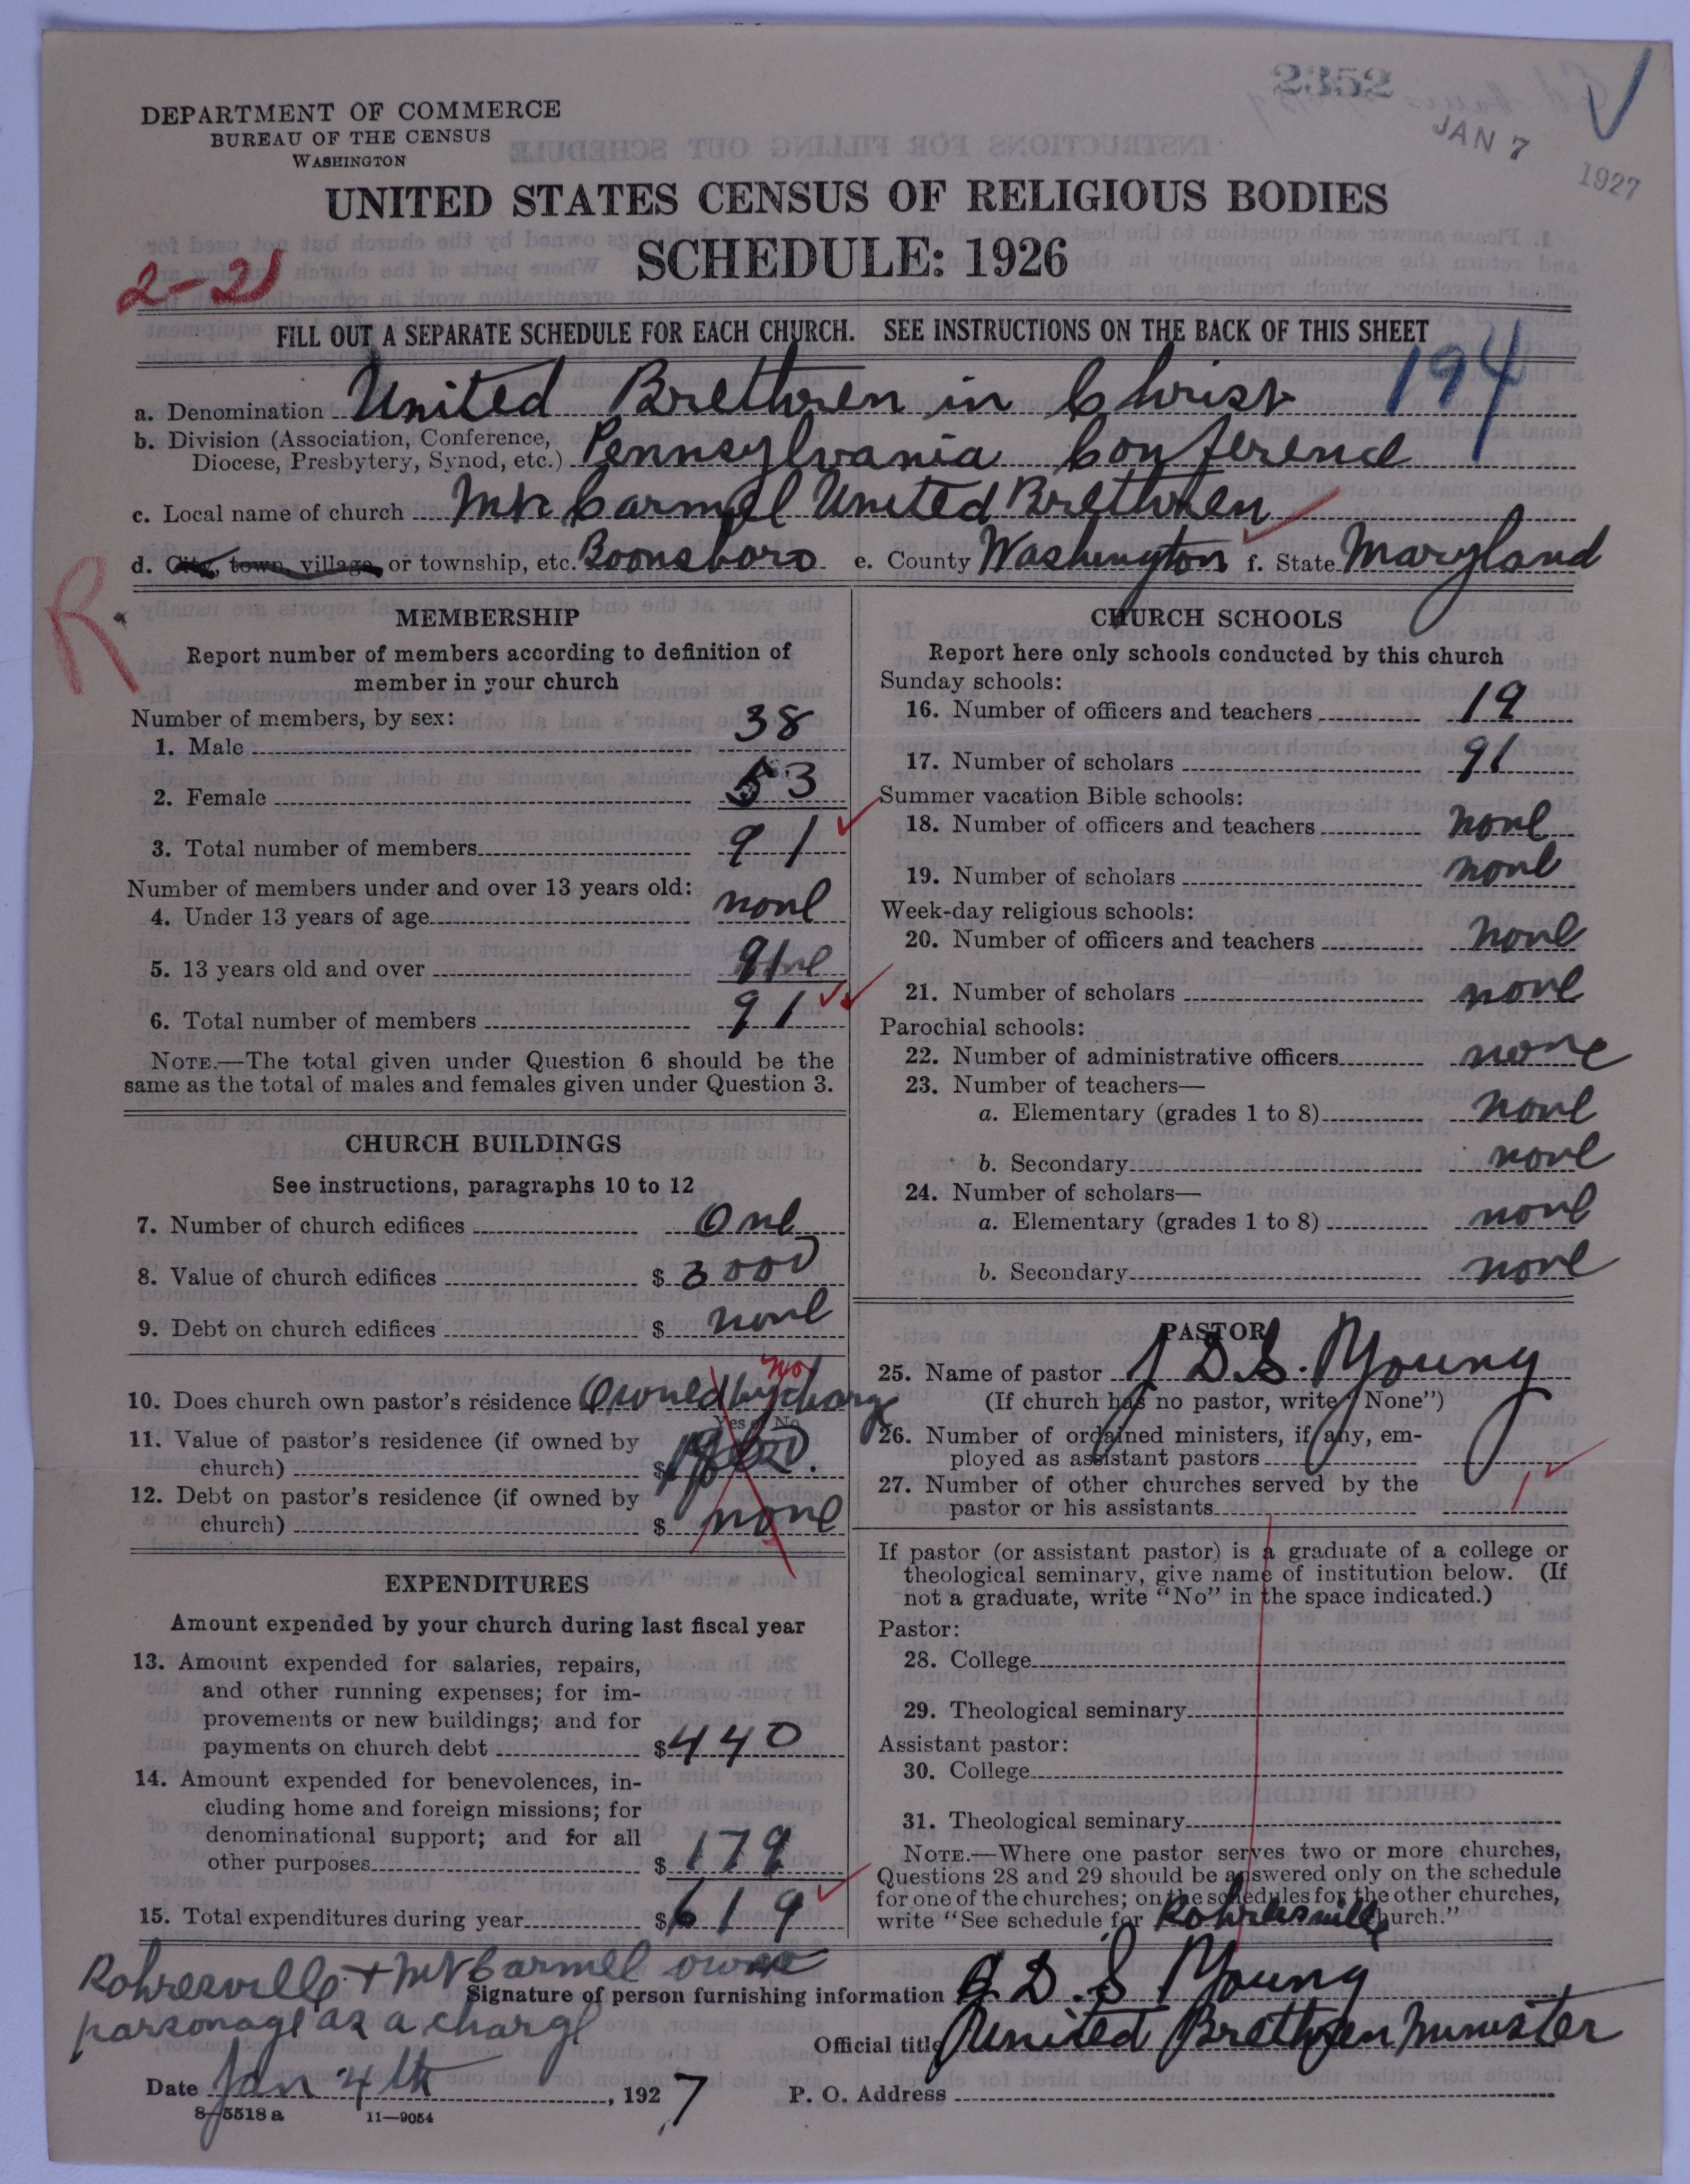 2352
JAN 7
1927
DEPARTMENT OF COMMERCE
BUREAU OF THE CENSUS
WASHINGTON
UNITED STATES CENSUS OF RELIGIOUS BODIES
SCHEDULE: 1926
2-21
FILL OUT A SEPARATE SCHEDULE FOR EACH CHURCH. SEE INSTRUCTIONS ON THE BACK OF THIS SHEET
194
a. Denomination United Brethren in Christ
b. Division (Association, Conference, Diocese, Presbytery, Synod, etc.) Pennsylvania Conference
c. Local name of church Mt Carmel United Brethren
d. City, town, village, or township, etc. Boonsboro e. County Washington f. State Maryland
R
MEMBERSHIP
Report number of members according to definition of
member in your church
Number of members, by sex:
1. Male 38
2. Female 53
3. Total number of members 91
Number of members under and over 13 years old:
4. Under 13 years of age none
5. 13 years old and over 91
6. Total number of members 91
NOTE.—The total given under Question 6 should be the
same as the total of males and females given under Question 3.
CHURCH BUILDINGS
See instructions, paragraphs 10 to 12
7. Number of church edifices One
8. Value of church edifices $ 3000
9. Debt on church edifices $ none
no
10. Does church own pastor's residence Owned by charge
Yes or No
11. Value of pastor's residence (if owned by
church) $
12. Debt on pastor's residence (if owned by
church) $ none
EXPENDITURES
Amount expended by your church during last fiscal year
13. Amount expended for salaries, repairs,
and other running expenses; for im-
provements or new buildings; and for
payments on church debt $ 440
14. Amount expended for benevolences, in-
cluding home and foreign missions; for
denominational support; and for all
other purposes $ 179
15. Total expenditures during year $ 619
CHURCH SCHOOLS
Report here only schools conducted by this church
Sunday schools:
16. Number of officers and teachers 19
17. Number of scholars 91
Summer vacation Bible schools:
18. Number of officers and teachers none
19. Number of scholars none
Week-day religious schools:
20. Number of officers and teachers none
21. Number of scholars none
Parochial schools:
22. Number of administrative officers none
23. Number of teachers—
a. Elementary (grades 1 to 8) none
b. Secondary none
24. Number of scholars—
a. Elementary (grades 1 to 8) none
b. Secondary none
PASTOR
25. Name of pastor J D.S. Young
(If church has no pastor, write "None")
26. Number of ordained ministers, if any, em-
ployed as assistant pastors
27. Number of other churches served by the
pastor or his assistants
If pastor (or assistant pastor) is a graduate of a college or
theological seminary, give name of institution below. (If
not a graduate, write "No" in the space indicated.)
Pastor:
28. College
29. Theological seminary
Assistant pastor:
30. College
31. Theological seminary
NOTE.—Where one pastor serves two or more churches,
Questions 28 and 29 should be answered only on the schedule
for one of the churches; on the schedules for the other churches,
write "See schedule for Rohresville church."
Rohresville + Mt Carmel own
parsonage as a charge
Signature of person furnishing information J D. S Young
Official title United Brethren Minister
Date Jan 4th, 1927 P. O. Address
8—5518 a 11—9054